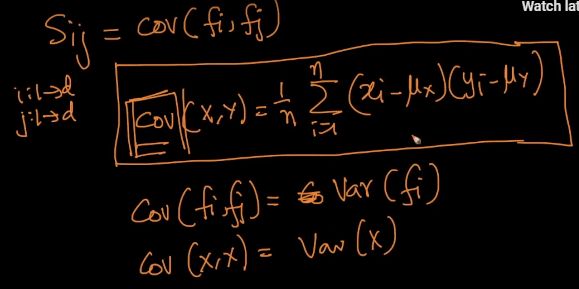 Watch lat
Sij = cov(fi, fj)
i:1→d
j:1→d
cov(x,y) = 1/n n∑i=1 (xi-μx)(yi-μy)
Cov(fi,fj) = Var(fi)
Cov(x,x) = Var(x)